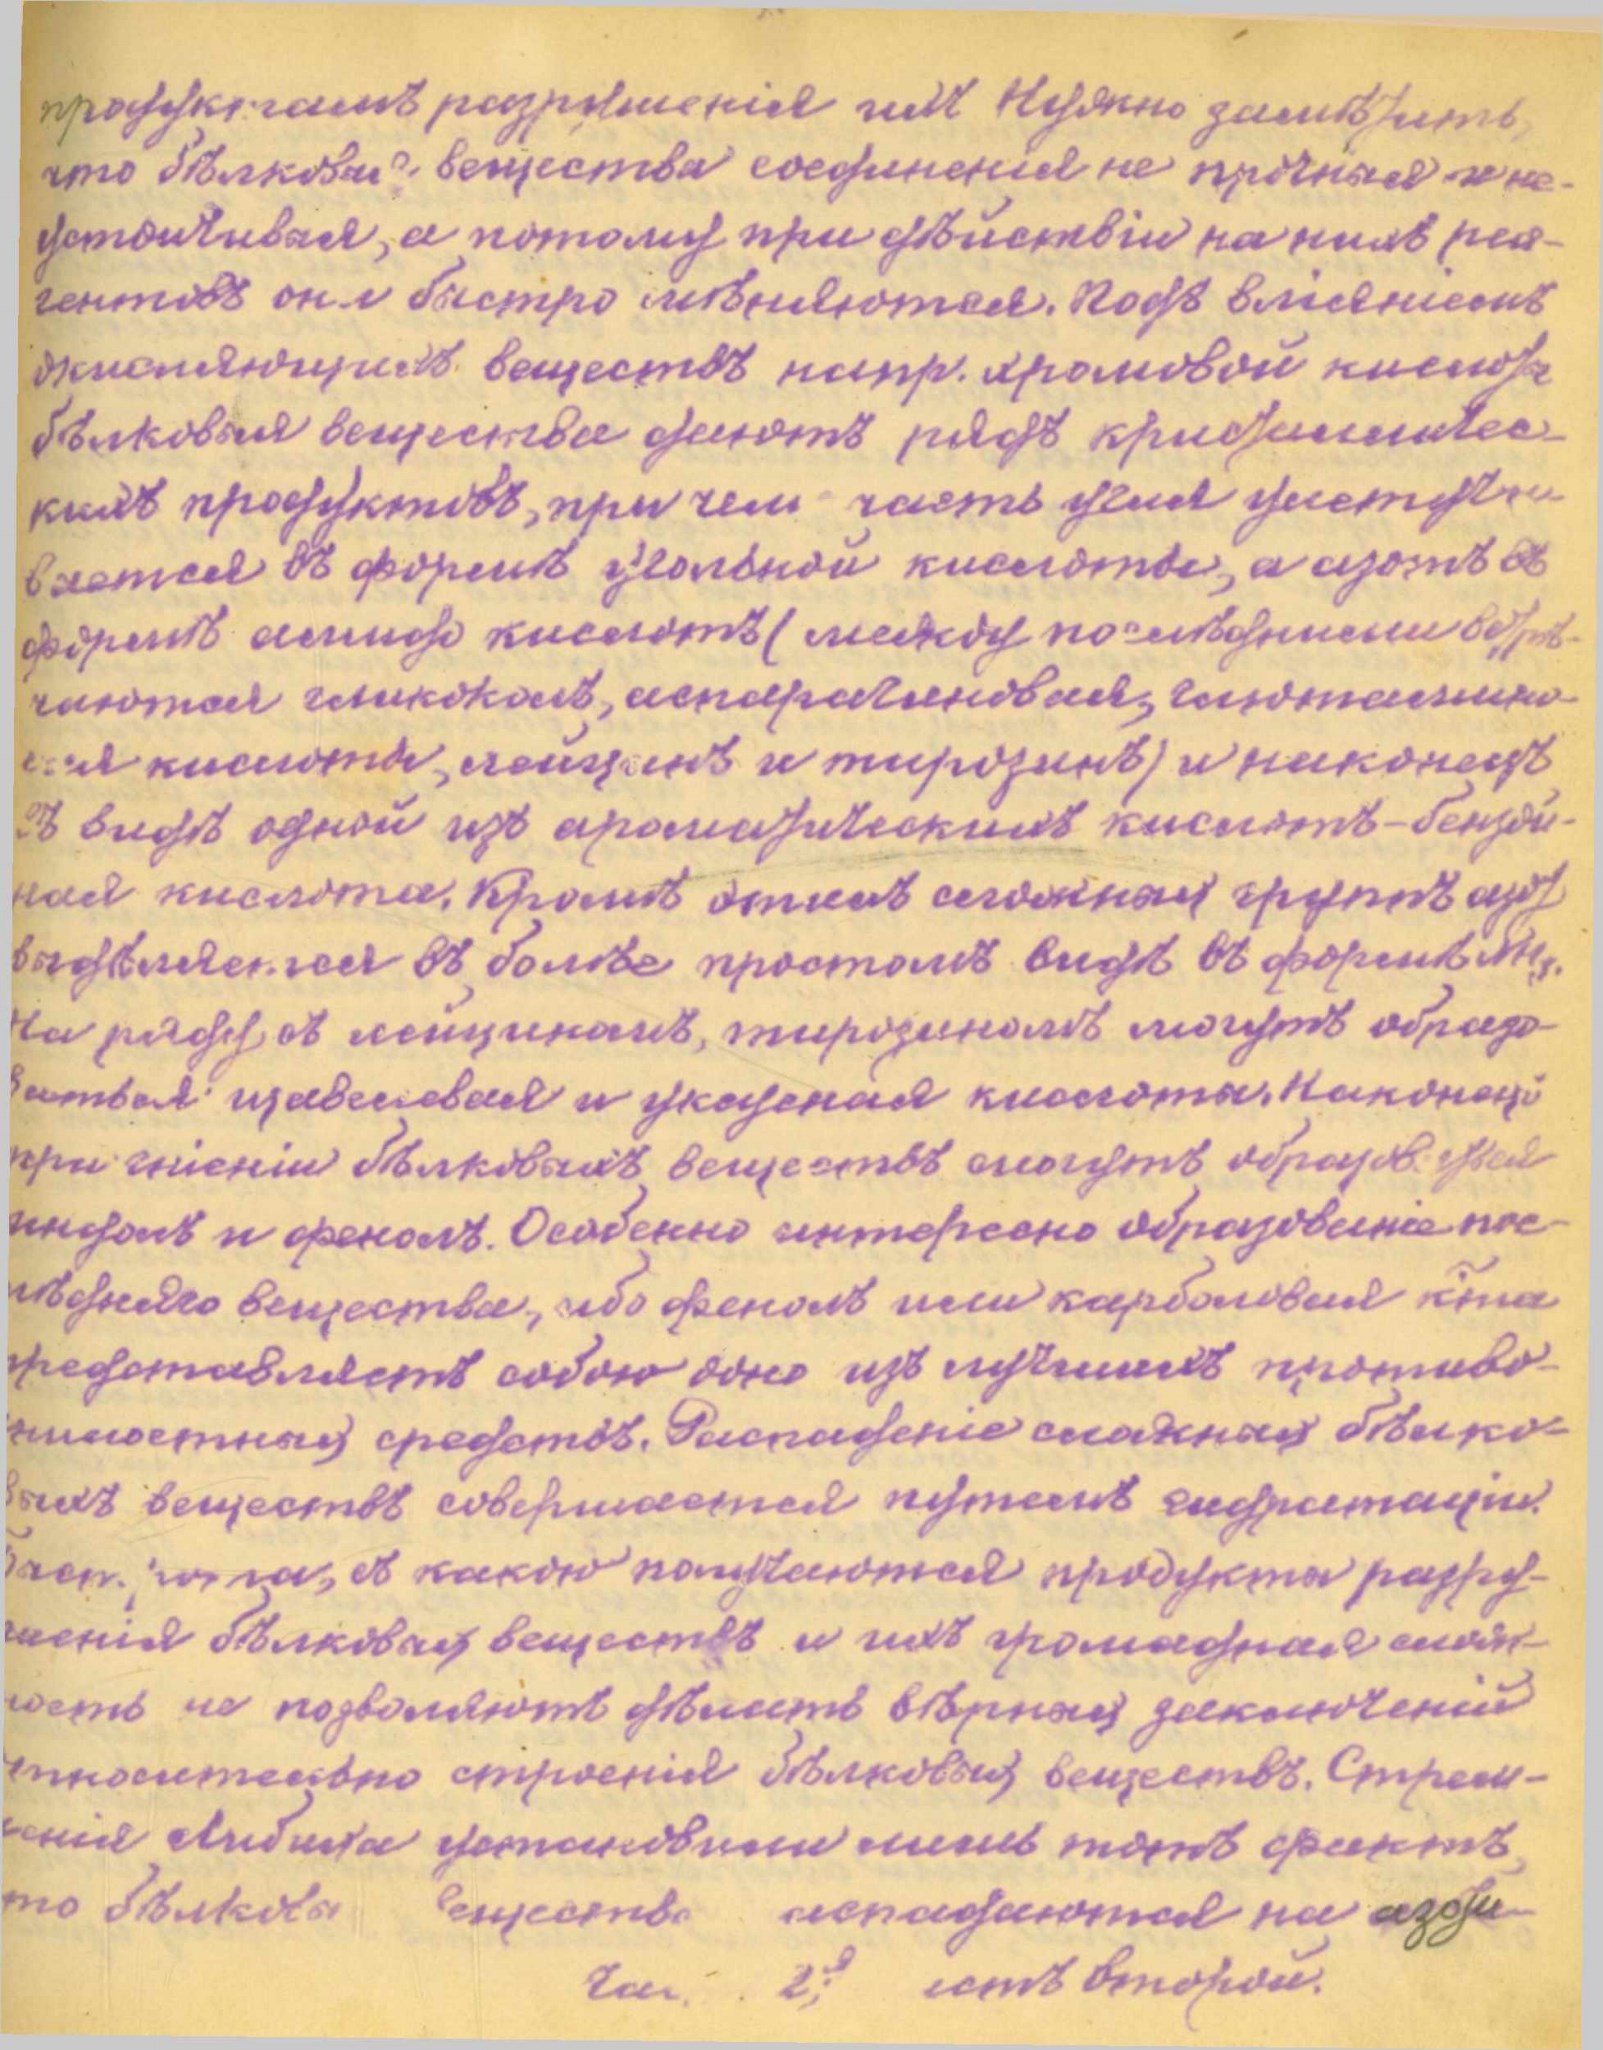 продуктамъ разрушенія ихъ Нужно замѣтить,
что бѣлковыя вещества соединенія не прочныя и не-
устойчивыя, а потому при дѣйствіи на нихъ реа-
гентовъ они быстро мѣняются. Подъ вліяніемъ
окисляющихъ веществъ напр. хромовой кислоты
бѣлковыя вещества даютъ рядъ кристалличес-
кихъ продуктовъ, при чемъ часть угля
въ формѣ угольной кислоты, а азотъ въ
формѣ амидо кислотъ (между послѣдними встрѣ-
чаются гликоколъ, аспарагиновая, глютамино-
вая кислоты, лейцинъ и тирозинъ) и наконецъ
въ видѣ одной изъ ароматическихъ кислотъ - бензой-
ная кислота. Кромѣ этихъ сложныхъ группъ азотъ
выдѣляется въ болѣе простомъ видѣ въ формѣ NH3.
На ряду съ лейциномъ, тирозиномъ могутъ образо-
ваться щавелевая и уксусная кислоты. Наконецъ
при гніеніи бѣлковыхъ веществъ могутъ образоваться
индолъ и фенолъ. Особенно интересно образованіе пос-
лѣдняго вещества, ибо фенолъ или карболовая к̃та
представляетъ собою одно изъ лучшихъ противо-
гнилостныхъ средствъ. Распаденіе сложныхъ бѣлко-
выхъ веществъ совершается путемъ гидратаціи.
Быстрота, съ какою получаются продукты разру-
шенія бѣлковыхъ веществъ и ихъ громадная слож-
ность не позволяютъ дѣлать вѣрныхъ заключеній
относительно строенія бѣлковыхъ веществъ. Стрем-
ленія Либиха установили лишь тотъ фактъ,
что бѣлковыя вещества распадаются на азоти-
2й листъ второй.